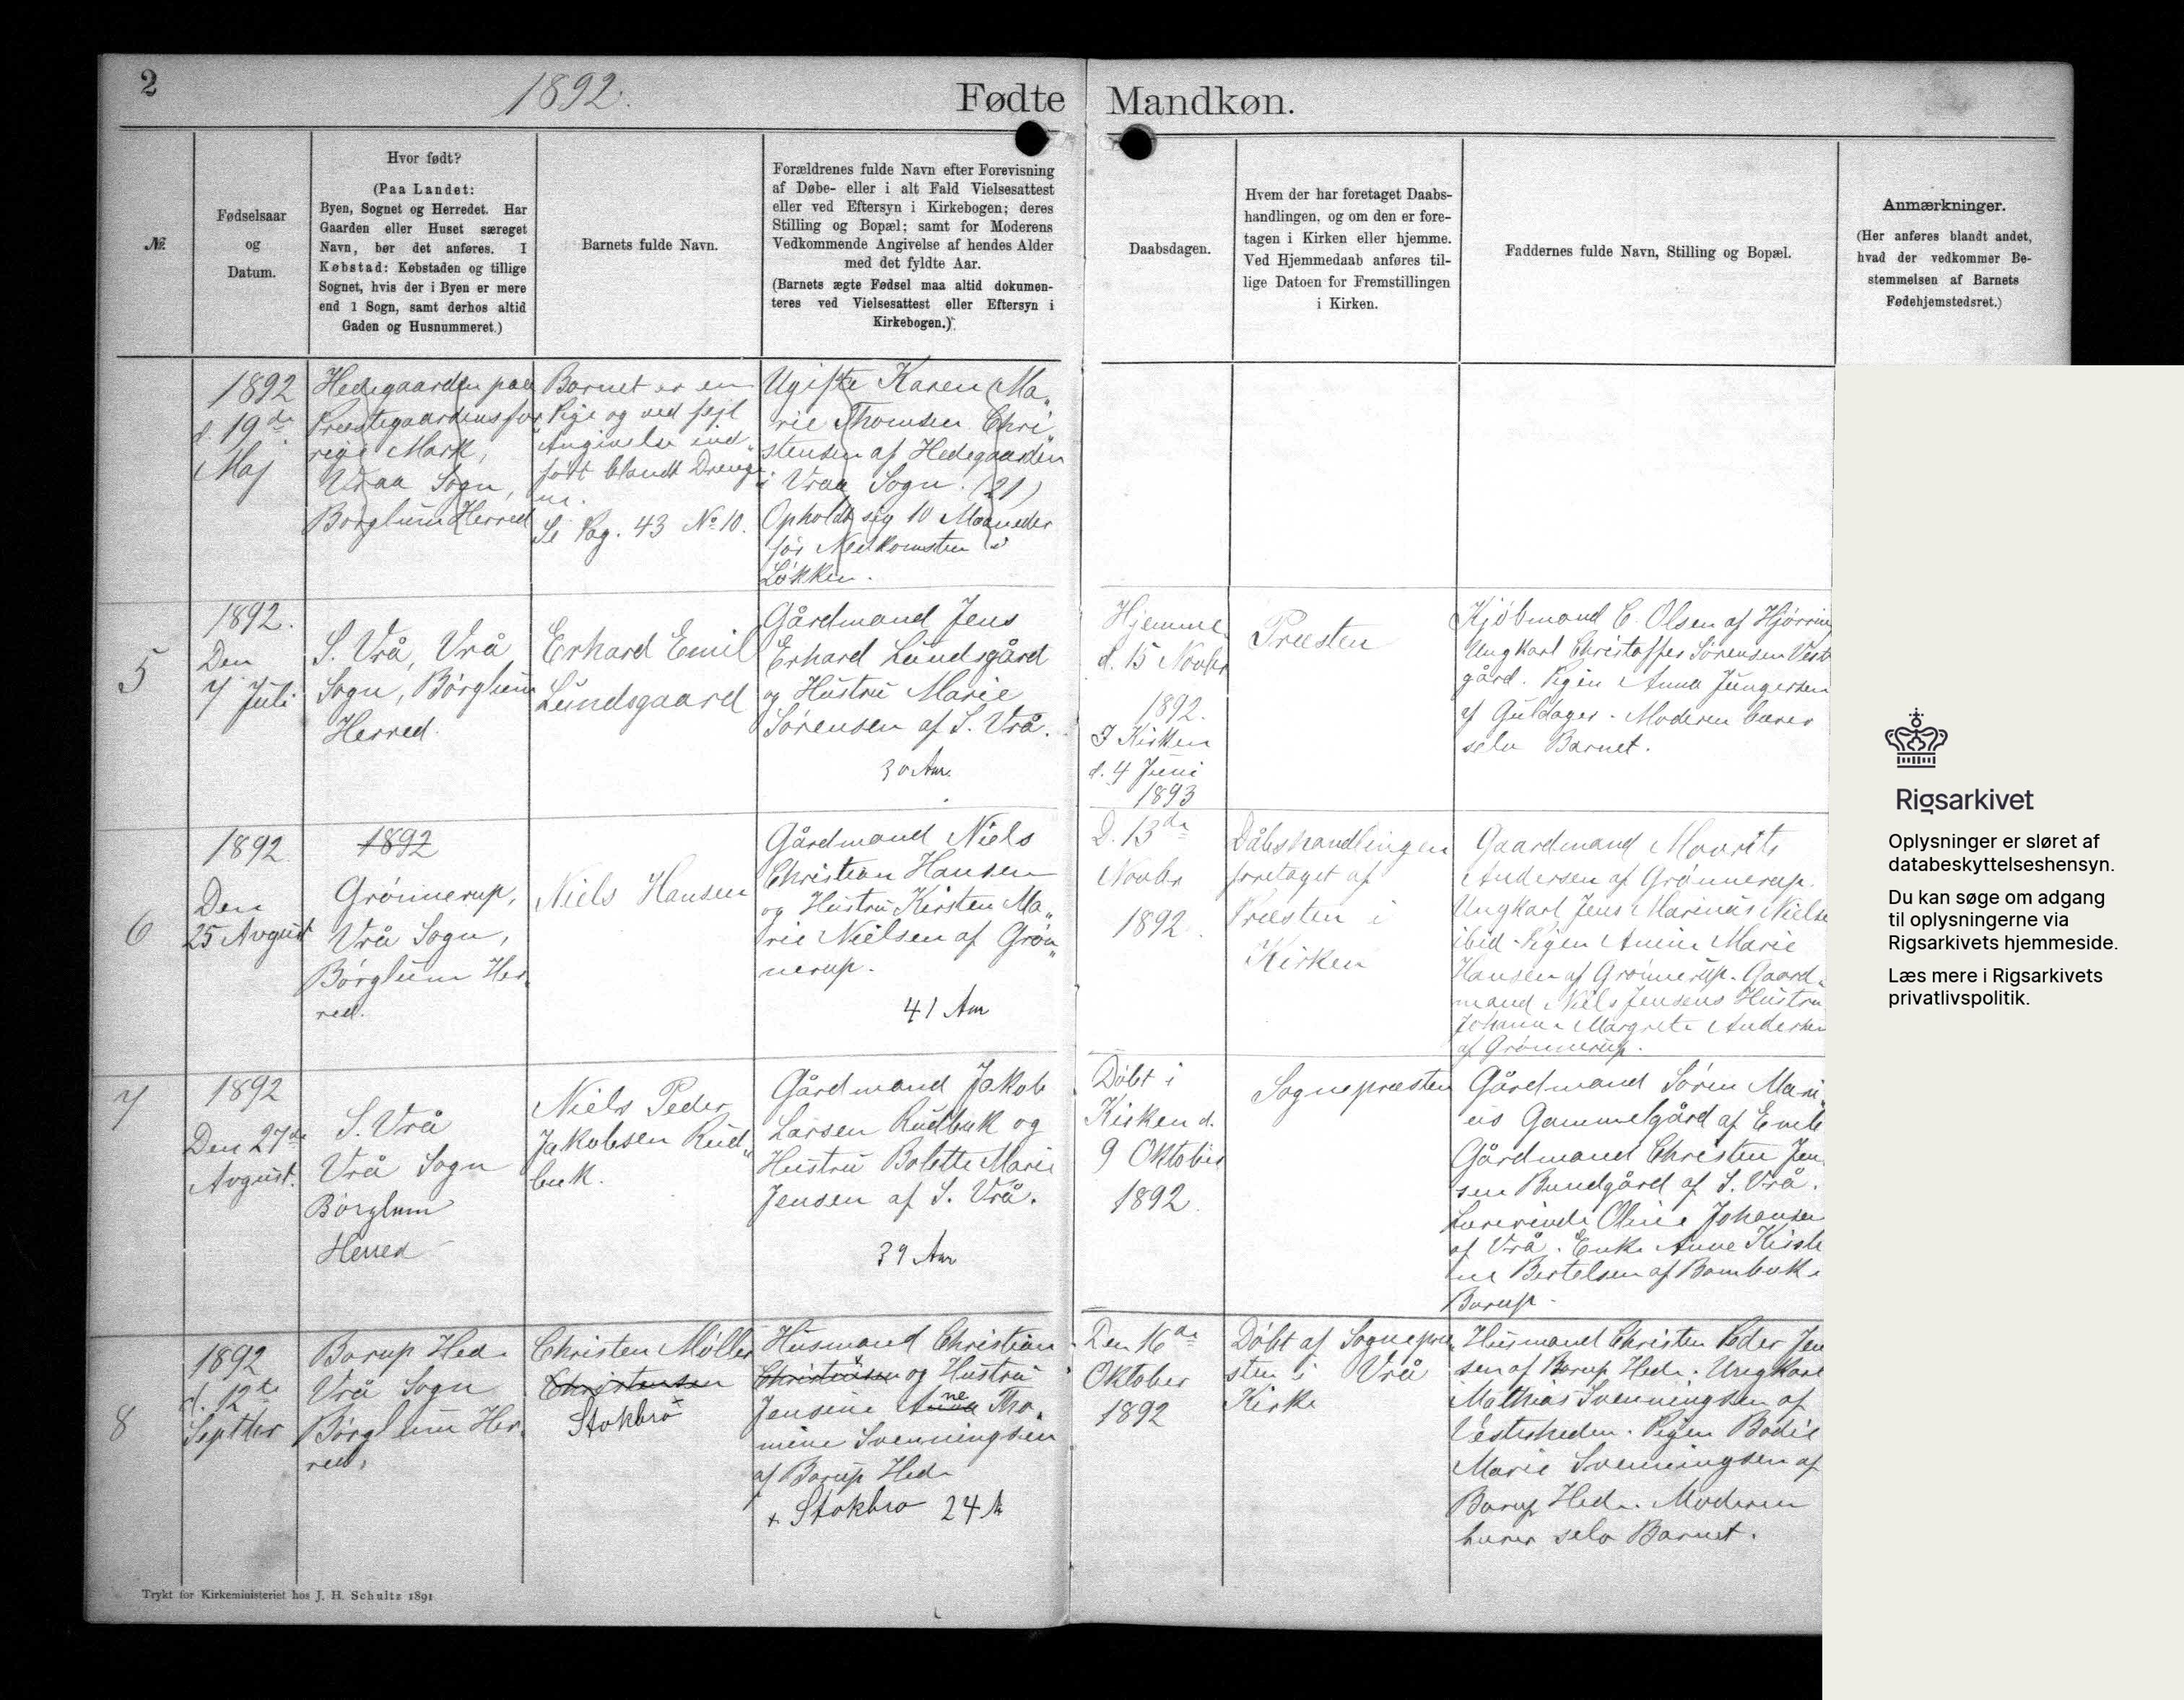 2
1892.
Fødte Mandkøn.
№.
Fødselsaar
og
Datum.
Hvor født?
(Paa Landet:
Byen, Sognet og Herredet. Har
Gaarden eller Huset særeget
Navn, bør det anføres. I
Købstad: Købstaden og tillige
Sognet, hvis der i Byen er mere
end 1 Sogn, samt derhos altid
Gaden og Husnummeret.)
Barnets fulde Navn.
Forældrenes fulde Navn efter Forevisning
af Døbe- eller i alt Fald Vielsesattest
eller ved Eftersyn i Kirkebogen; deres
Stilling og Bopæl; samt for Moderens
Vedkommende Angivelse af hendes Alder
med det fyldte Aar.
(Barnets ægte Fødsel maa altid dokumen-
teres ved Vielsesattest eller Eftersyn i
Kirkebogen.)
Daabsdagen.
Hvem der har foretaget Daabs-
handlingen, og om den er fore-
tagen i Kirken eller hjemme.
Ved Hjemmedaab anføres til-
lige Datoen for Fremstillingen
i Kirken.
Faddernes fulde Navn, Stilling og Bopæl.
Anmærkninger.
(Her anføres blandt andet,
hvad der vedkommer Be-
stemmelsen af Barnets
Fødehjemstedsret.)
1892
d. 19de
Maj
Hedegaarden paa
Præstegaardens for
rige Mark,
Vraa Sogn,
Børglum Herred
Barnet er en
Pige og ved fejl
Angivelse ind„
ført blandt Drenge
ne.
Se Pag. 43 № 10.
Ugifte Karen Ma„
rie Thomsen Chri„
stensen af Hedegaarden
i Vraa Sogn. (21)
Opholdt sig 10 Maaneder
før Nedkomsten i
Løkken.
5
1892.
Den
7 Juli
S. Vrå, Vrå
Sogn, Børglum
Herred.
Erhard Emil
Lundsgaard
Gårdmand Jens
Erhard Lundsgård
og Hustru Marie
Sørensen af S. Vrå.
30 Aar
Hjemme
d. 15 Novbr
1892.
I Kirken
d. 4 Juni
1893
Præsten
Kjøbmand C. Olsen af Hjørrin
Ungkarl Christoffer Sørensen Vest
gård. Pigen Anna Jungersen
af Guldager. Moderen bærer
selv Barnet.
6
1892
Den
25 Avgust
1892
Grønnerup,
Vrå Sogn,
Børglum Her„
red.
Niels Hansen
Gårdmand Niels
Christian Hansen
og Hustru Kirsten Ma„
rie Nielsen af Grøn„
nerup.
41 Aar
D. 13de
Novbr
1892.
Dåbshandlingen
foretaget af
Præsten i
Kirken
Gaardmand Mourits
Andersen af Grønnerup.
Ungkarl Jens Marinus Nielse
ibid. Pigen Marie
Hansen af Grønnerup. Gaard„
mand Niels Jensens Hustru
Johanne Margrete Andersen
af Grønnerup.
7
1892
Den 27de
Avgust.
S. Vrå
Vrå Sogn
Børglum
Herred
Niels Peder
Jakobsen Rud„
bæk.
Gårdmand Jakob
Larsen Rudbæk og
Hustru Bolette Marie
Jensen af S. Vrå.
39 Aar
Døbt i
Kirken d.
9 Oktober
1892.
Sognepræsten
Gårdmand Søren Mari„
us Gammelgård af Emb
Gårdmand Christen Jen
sen Bundgård af S. Vrå.
Lærerinde Oline Johansen
af Vrå. Enke Anne Kirsti
ne Bertelsen af Bambæk i
Borup.
8
1892
d. 12te
Septbr
Borup Hede
Vrå Sogn
Børglum Her„
red,
Christen Møller
Christensen
Stokbro
Husmand Christian
Christensen og Hustru
Jensine Anne Tho„
mine Svenningsen
af Borup Hede
+ Stokbro 24 A
Den 16de
Oktober
1892
Døbt af Sognepræ„
sten i Vrå
Kirke
Husmand Christen Peder Jen
sen af Borup Hede. Ungkarl
Mathias Svenningsen af
Vesterheden. Pigen Bodil
Marie Svenningsen af
Borup Hede. Moderen
bærer selv Barnet.
Trykt for Kirkeministeriet hos J. H. Schultz 1891
Rigsarkivet
Oplysninger er sløret af
databeskyttelseshensyn.
Du kan søge om adgang
til oplysningerne via
Rigsarkivets hjemmeside.
Læs mere i Rigsarkivets
privatlivspolitik.